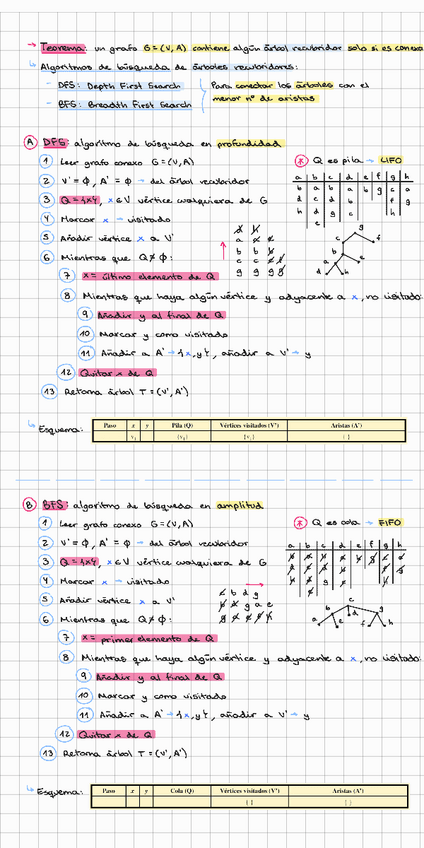 → Teorema: un grafo G = (V, A) contiene algún árbol recubridor solo si es conexo
Algoritmos de búsqueda de árboles recubridores:
- DFS: Depth First Search
- BFS: Breadth First Search
Para conectar los árboles con el
menor nº de aristas
A DFS: algoritmo de búsqueda en profundidad
1 Leer grafo conexo G = (V, A)
2 V' = ϕ, A' = ϕ → del árbol recubridor
3 Q = {x}, x ∈ V vértice cualquiera de G
4 Marcar x → visitado
5 Añadir vértice x a V'
6 Mientras que Q ≠ ϕ:
7 x = último elemento de Q
8 Mientras que haya algún vértice y adyacente a x, no visitado:
9 Añadir y al final de Q
10 Marcar y como visitado
11 Añadir a A' → {x, y}, añadir a V' → y
12 Quitar x de Q
13 Retorna árbol T = (V', A')
* Q es pila → LIFO
a b c d e f g h
Esquema:
Paso x y Pila (Q) Vértices visitados (V') Aristas (A')
B BFS: algoritmo de búsqueda en amplitud
1 Leer grafo conexo G = (V, A)
2 V' = ϕ, A' = ϕ → del árbol recubridor
3 Q = {x}, x ∈ V vértice cualquiera de G
4 Marcar x → visitado
5 Añadir vértice x a V'
6 Mientras que Q ≠ ϕ:
7 x = primer elemento de Q
8 Mientras que haya algún vértice y adyacente a x, no visitado:
9 Añadir y al final de Q
10 Marcar y como visitado
11 Añadir a A' → {x, y}, añadir a V' → y
12 Quitar x de Q
13 Retorna árbol T = (V', A')
* Q es cola → FIFO
a b c d e f g h
Esquema:
Paso x y Cola (Q) Vértices visitados (V') Aristas (A')